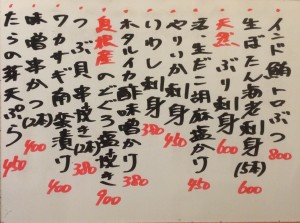 インド鮪トロぶつ 800
生ぼたん海老刺身(5本) 600
天然 ぶり刺身 500
活生だこ胡麻塩かり 450
やりいか刺身 450
いわし刺身 380
ホタルイカ酢味噌かり 450
島根産 のどぐろ塩焼き 900
つぶ貝串焼き(2本) 380
ワカサギ南蛮漬り 400
味噌串かつ(2本) 400
たらの芽天ぷら 450